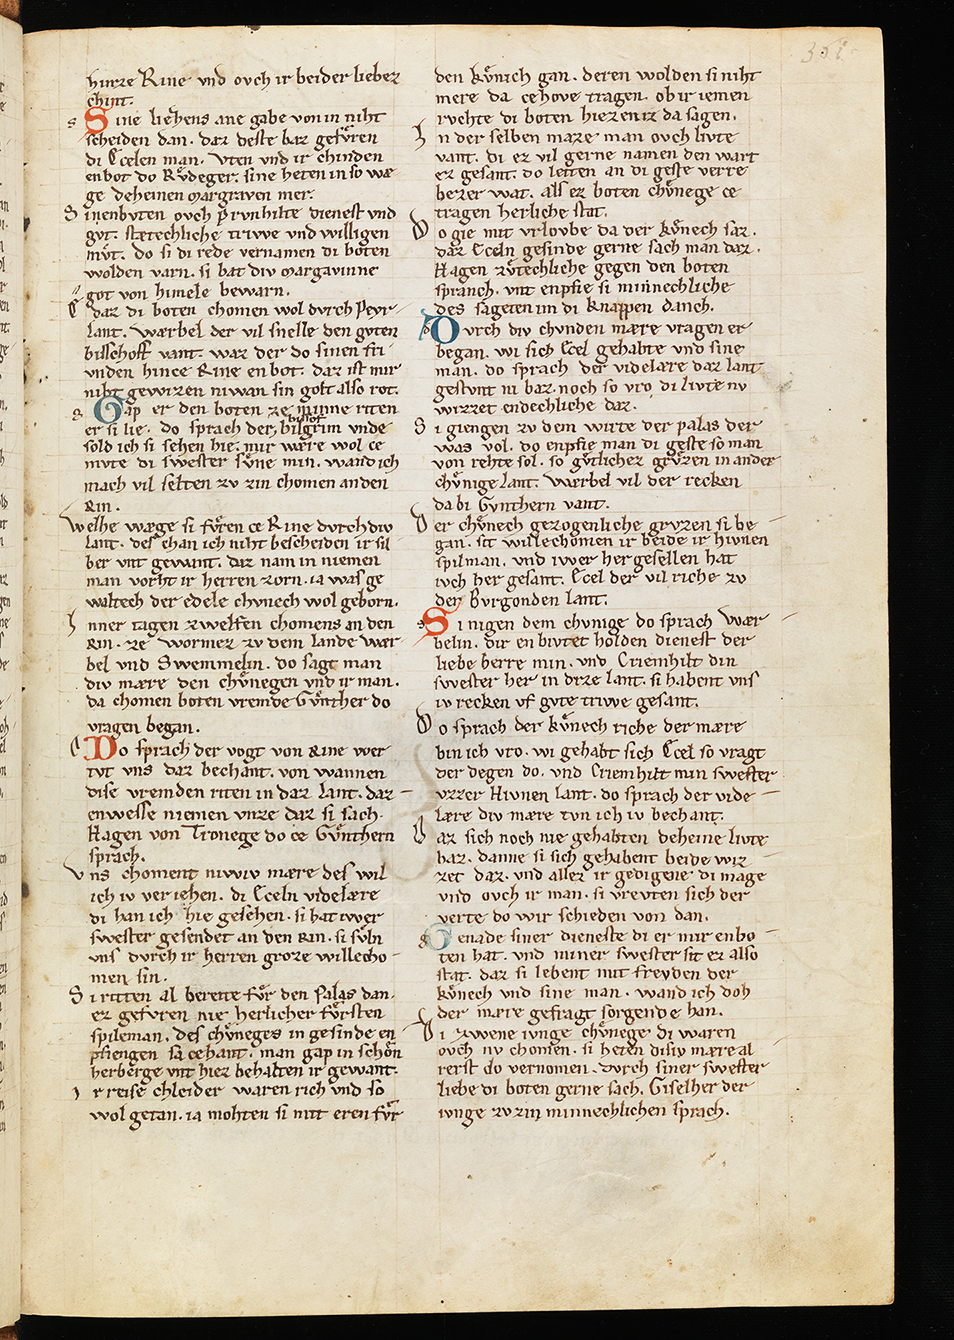 351
hinze Rine vnd ovch ir beider liebez
chint.
Sine liezens ane gabe von in niht
scheiden dan. daz deste baz gefv̊ren
di Ecelen man. Vten vnd ir chinden
enbot do Rv̊deger. sine heten in so wæ
ge deheinen margraven mer.
Si inenbvten ovch prvnhilte dienest vnd
gvt. stætechliche triwe vnd willigen
mv̊t. do si di rede vernamen di boten
wolden varn. si bat div margravinne
got von himele bewarn.
E daz di boten chomen wol dvrch Peyr
lant. Wærbel der vil snelle den gvten
bisschoff vant. waz der do sinen fri
vnden hince Rine enbot. daz ist mir
niht gewizen niwan sin golt also rot.
Gap er den boten ze minne riten
er si lie. do sprach der bissof bilgrim vnde
sold ich si sehen hie. mir wære wol ce
mvte di swester sv̊ne min. wand ich
mach vil selten zv zin chomen an den
Rin.
Welhe wæge si fv̊ren ce Rine dvrch div
lant. des chan ich niht bescheiden ir sil
ber vnt gewant. daz nam in niemen
man vorht ir herren zorn. ia was ge
waltech der edele chvnech wol geborn.
Inner tagen zwelfen chomens an den
Rin. ze wormez zv dem lande Wær
bel vnd Swemmelin. do sagt man
div mære den chv̊negen vnd ir man.
da chomen boten vremde Gv̊nther do
vragen began.
Do sprach der vogt von Rine wer
tvt vns daz bechant. von wannen
dise vremden riten in daz lant. daz
enwesse niemen vnze daz si sach.
Hagen von Tronege do ce Gv̊nthern
sprach.
Vns choment nivviv mære des wil
ich iv veriehen. di Eceln videlære
di han ich hie gesehen. si hat iwer
swester gesendet an den Rin. si svln
vns dvrch ir herren groze willecho
men sin.
Si ritten al bereite fv̊r den palas dan.
ez gefvren nie herlicher fv̊rsten
spileman. des chv̊neges in gesinde en
pfiengen sa cehant. man gap in schôn
herberge vnt hiez behalten ir gewant.
Ir reise chleider waren rich vnd so
wol getan. ia mohten si mit eren fv̊r
den kv̊nich gan. deren wolden si niht
mere da cehove tragen. ob ir iemen
rvchte di boten hiezen iz da sagen.
In der selben maze man ovch livte
vant. di ez vil gerne namen den wart
ez gesant. do leiten an di geste verre
bezer wat. als ez boten chv̊nege ce
tragen herliche stat.
Do gie mit vrlovbe da der kv̊nech saz.
daz Eceln gesinde gerne sach man daz.
Hagen zv̊htechliche gegen den boten
spranch. vnt enpfie si minnechliche
des sageten im di knappen danch.
Dvrch div chvnden mære vragen er
began. wi sich Ecel gehabte vnd sine
man. do sprach der videlære daz lant
gestvnt ni baz. noch so vro di livte nv
wizzet endechliche daz.
Si giengen zv dem wirte der palas der
was vol. do enpfie man di geste so man
von rehte sol. so gv̊tlichez grv̊zen in ander
chv̊nige lant. Wærbel vil der recken
da bi Gvnthern vant.
Der chv̊nech gezogenliche grvzen si be
gan. sit willechomen ir beide ir hivnen
spilman. vnd iwer hergesellen hat
ivch her gesant. Ecel der vil riche zv
der Bvrgonden lant.
Si nigen dem chvnige do sprach Wær
belin. dir enbivtet holden dienest der
liebe herre min. vnd Criemhilt din
swester her in dize lant. si habent vns
iv recken vf gvte triwe gesant.
Do sprach der kv̊nech riche der mære
bin ich vro. wi gehabt sich Ecel so vragt
der degen do. vnd Criemhilt min swester
vzzer Hivnen lant. do sprach der vide
lære div mære tvn ich iv bechant.
Daz sich noch nie gehabten deheine livte
baz. danne si sich gehabent beide wiz
zet daz. vnd allez ir gedigene di mage
vnd ovch ir man. si vrevten sich der
verte do wir schieden von dan.
Genade siner dieneste di er mir enbo
ten hat. vnd miner swester sit ez also
stat. daz si lebent mit freyden der
kv̊nech vnd sine man. wand ich doh
der mære gefragt sorgende han.
Di zwene ivnge chv̊nege di waren
ovch nv chomen. si heten disiv mære al
rerst do vernomen. dvrch siner swester
liebe di boten gerne sach. Giselher der
ivnge zv zin minnechlichen sprach.